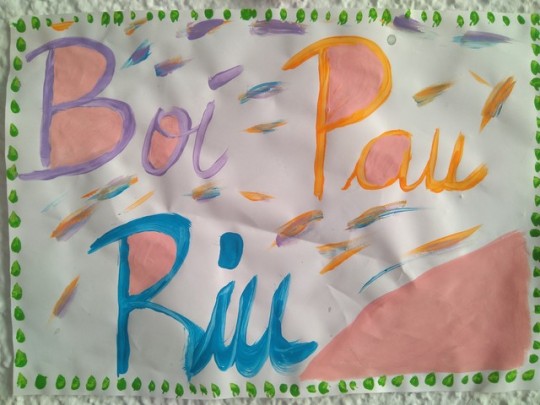 Boi Pau
Riu